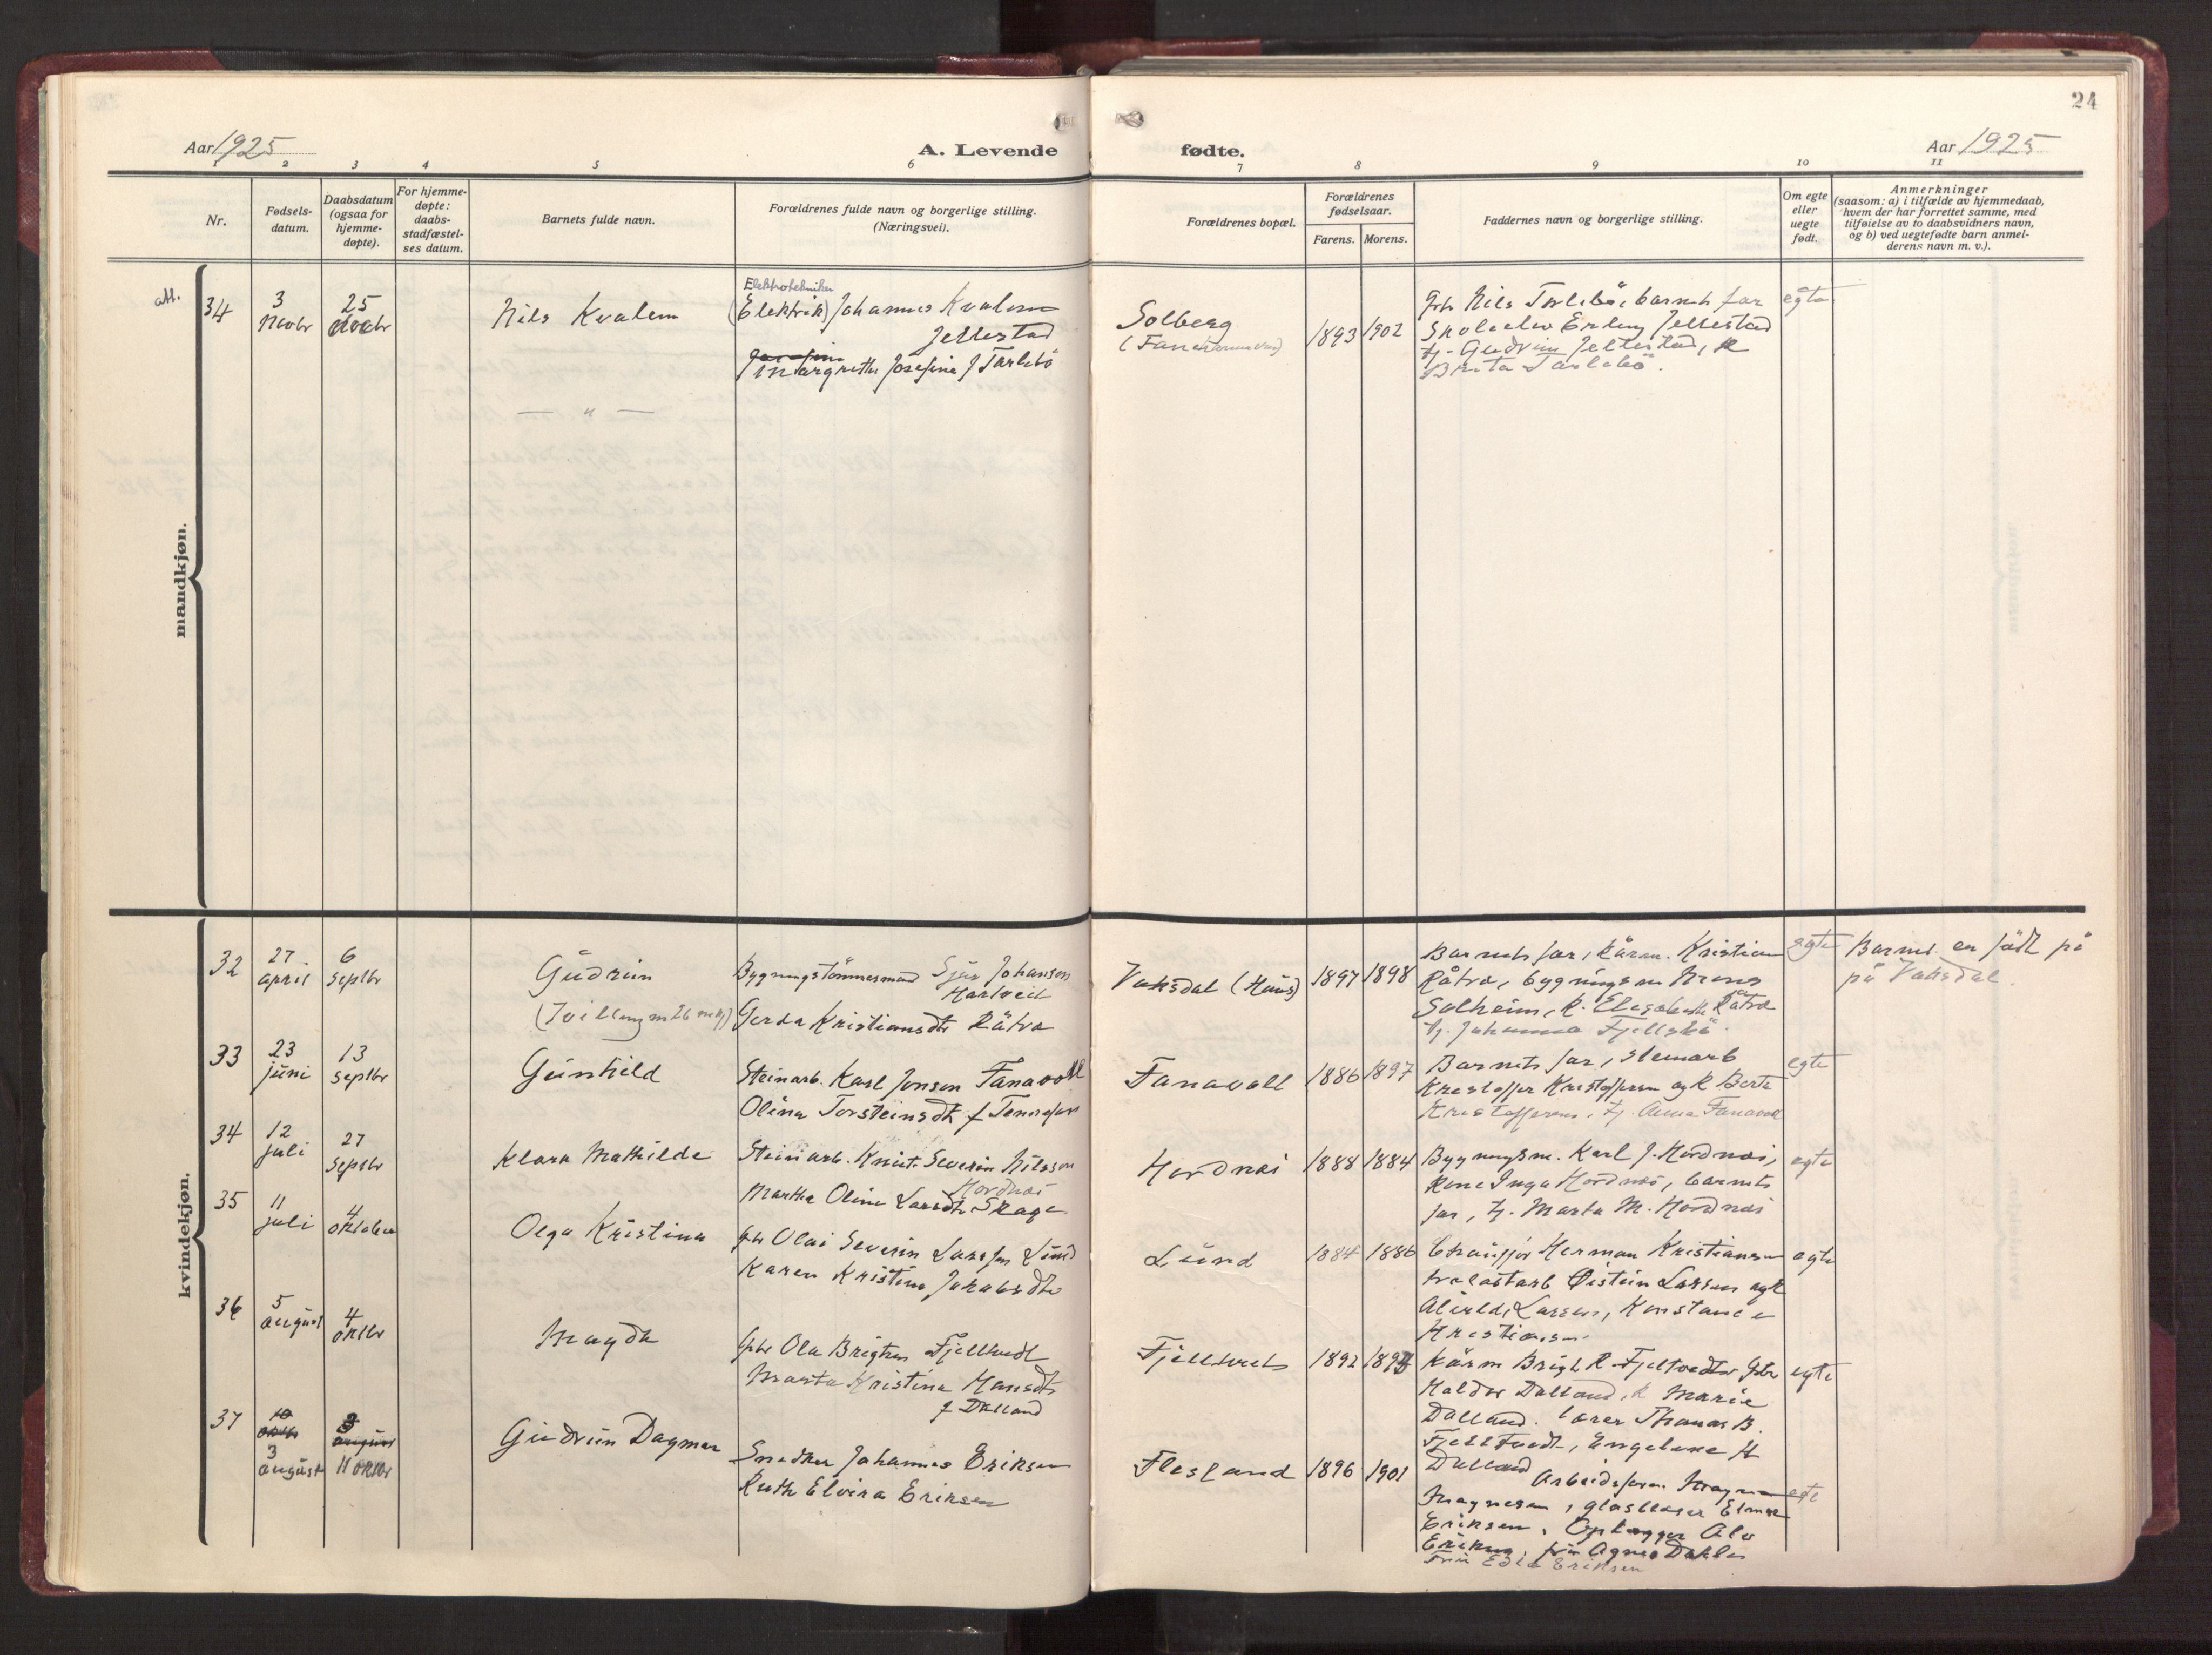 24
Aar 1925
A. Levende
fødte.
Aar 1925
1 2 3 4 5 6 7 8 9 10 11
Nr.
Fødsels-
datum.
Daabsdatum
(ogsaa for
hjemme-
døpte).
For hjemme-
døpte:
daabs-
stadfæstel-
ses datum.
Barnets fulde navn.
Forældrenes fulde navn og borgerlige stilling.
(Næringsvei).
Forældrenes bopæl.
Forældrenes
fødselsaar.
Farens. Morens.
Faddernes navn og borgerlige stilling.
Om egte
eller
uegte
født.
Anmerkninger
(saasom: a) i tilfælde av hjemmedaab,
hvem der har forrettet samme, med
tilføielse av to daabsvidners navn,
og b) ved uegtefødte barn anmel-
derens navn m. v.).
mandkjøn.
att.
34
3
Novbr
25
Novbr
Nils Kvalem
Elektrotekniker
(Elektrik) Johannes Kvalem
Jellestad
Josefine
Margrethe Josefine f Tarlebö
Solberg
(Fane
1893
1902
Gbr Nils Tarlebö, barnets far
Skoleelev Erling Jellestad
tj. Gudrun Jellestad, k
Brita Tarlebö.
egte
— " —
kvindekjøn.
32
27
april
6
Septbr
Gudrun
(Tvilling m 26 mkj)
Bygningstömmermand Sjur Johansen
Hartveit
Gerda Kristiansdtr Råtra
Vaksdal (Haus)
1897
1898
Barnets far, kårm. Kristian
Råtra, bygningsm
Solheim, k. Elisabeth Råtra
tj. Johanna Fjellsbö.
egte
Barnet er födt på
på Vaksdal.
33
23
juni
13
Septbr
Gunhild
Steinarb. Karl Jonsen Fanavoll
Olina Torsteinsdtr f
Fanavoll
1886
1897
Barnets far, steinarb
Kristoffer Kristoffersen og k Berta
Kristoffersen, tj. Anna Fanavoll
egte
34
12
juli
27
Septbr
Klara Mathilde
Steinarb. Knut Severin Nilsson
Hordnæs
Martha Oline Larsdtr Skage
Hordnæs
1888
1884
Bygningsm. Karl J. Hordnæs,
Kone Inga Hordnæs, barnets
far, tj. Marta M. Hordnæs
egte
35
11
juli
4
oktober
Olga Kristina
gbr Olai Severin Larssen Lund
Karen Kristine Jakobsdtr
Lund
1884
1886
Chauffør Herman Kristiansen
Øistein Larsen og k
Alvilde Larsen, Konstance
Kristiansen.
egte
36
5
august
4
oktbr
Magda
gbr Ola Brigtsen Fjelltvedt
Marta Kristina Hansdtr
f Dalland
Fjelltvedt
1892
1893
Kårm Brigt R. Fjeltvedt, Gbr
Haldor Dalland, k Marie
Dalland. lærer Thomas B.
Fjelltvedt, Engeline H
Dalland
egte
37
10
oktbr
3
august
3
august
11 oktbr
Gudrun Dagmar
Snedker Johannes Eriksen
Ruth Elvira Eriksen
Flesland
1896
1901
Arbeidsform. Magne
Magnesen, glasblaser Elmer
Eriksen, Oplegger Alv
Eriksen, fru Agnes Dahle
Fru Edle Eriksen
egte